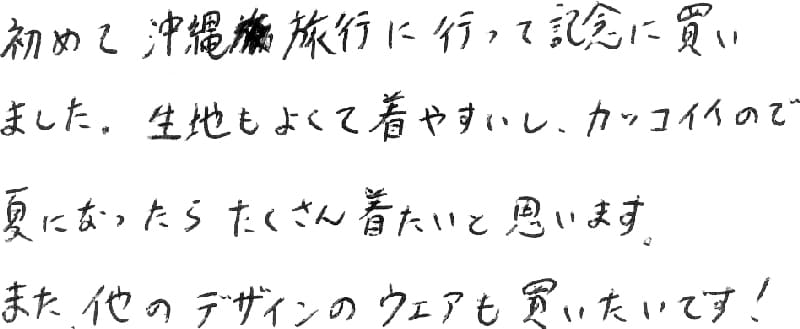 初めて沖縄旅行に行って記念に買い
ました。生地もよくて着やすいし、カッコイイので
夏になったらたくさん着たいと思います。
また、他のデザインのウェアも買いたいです!